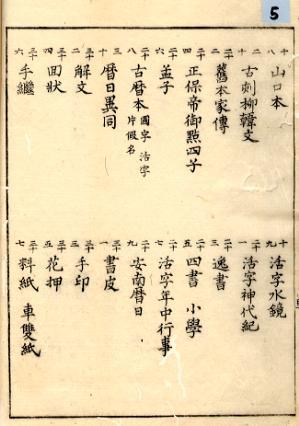 5
十八 山口本
十九 活字水鏡
二十 古刻柳韓文
二十一 活字神代紀
二十二 舊本家傳
二十三 逸書
二十四 正保帝御點四子
二十五 四書 小學
二十六 孟子
二十七 活字年中行事
二十八 古暦本 國字 活字 片假名
二十九 安南暦日
三十 暦日異同
三十一 書皮
三十二 解文
三十三 手印
三十四 回狀
三十五 花押
三十六 手繼
三十七 料紙 車雙紙